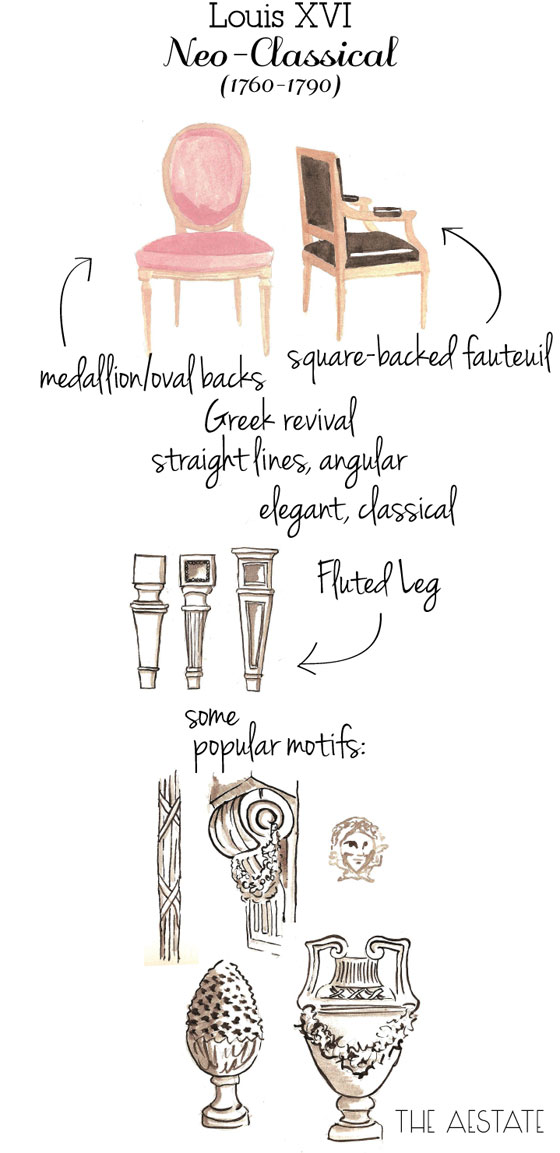 Louis XVI
Neo-Classical
(1760-1790)
medallion/oval backs
square-backed fauteuil
Greek revival
straight lines, angular
elegant, classical
Fluted Leg
some
popular motifs:
THE AESTATE